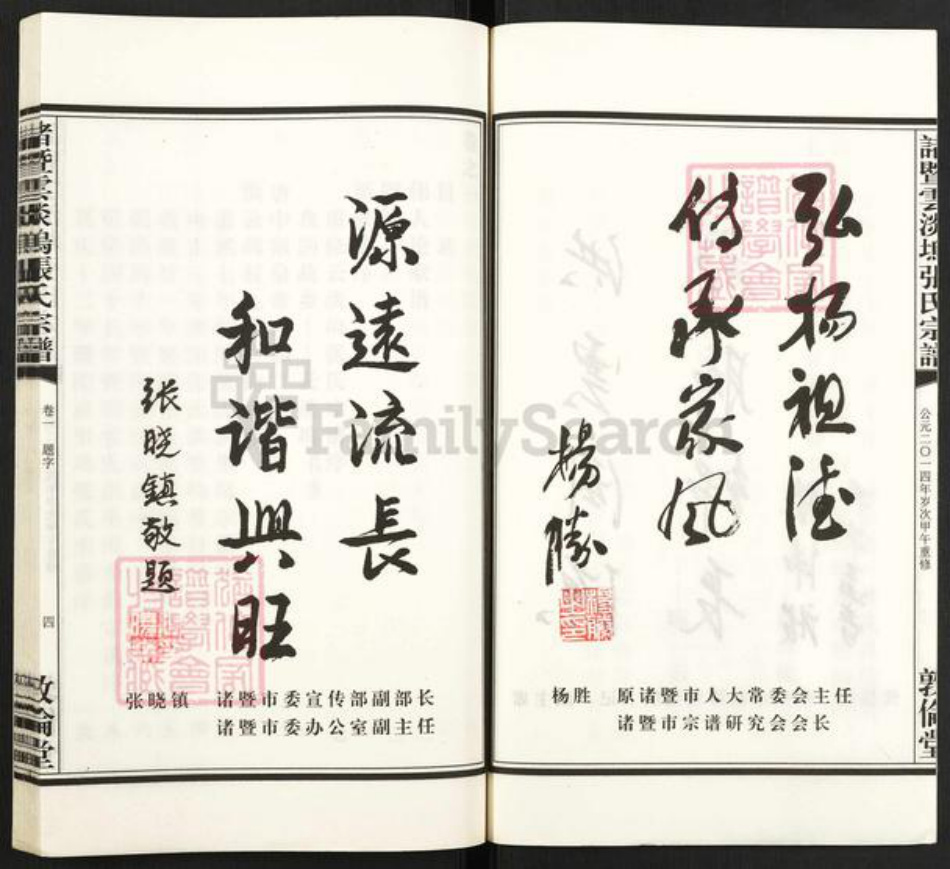 諸暨雲淡塢張氏宗譜
公元二〇一四年岁次甲午重修
敦倫堂
弘扬祖德
传承家风
楊勝
杨胜 原诸暨市人大常委会主任
诸暨市宗谱研究会会长
源遠流長
和谐興旺
张晓鎮敬题
张晓镇 诸暨市委宣传部副部长
诸暨市委办公室副主任
卷一 题字
四
FamilySearch